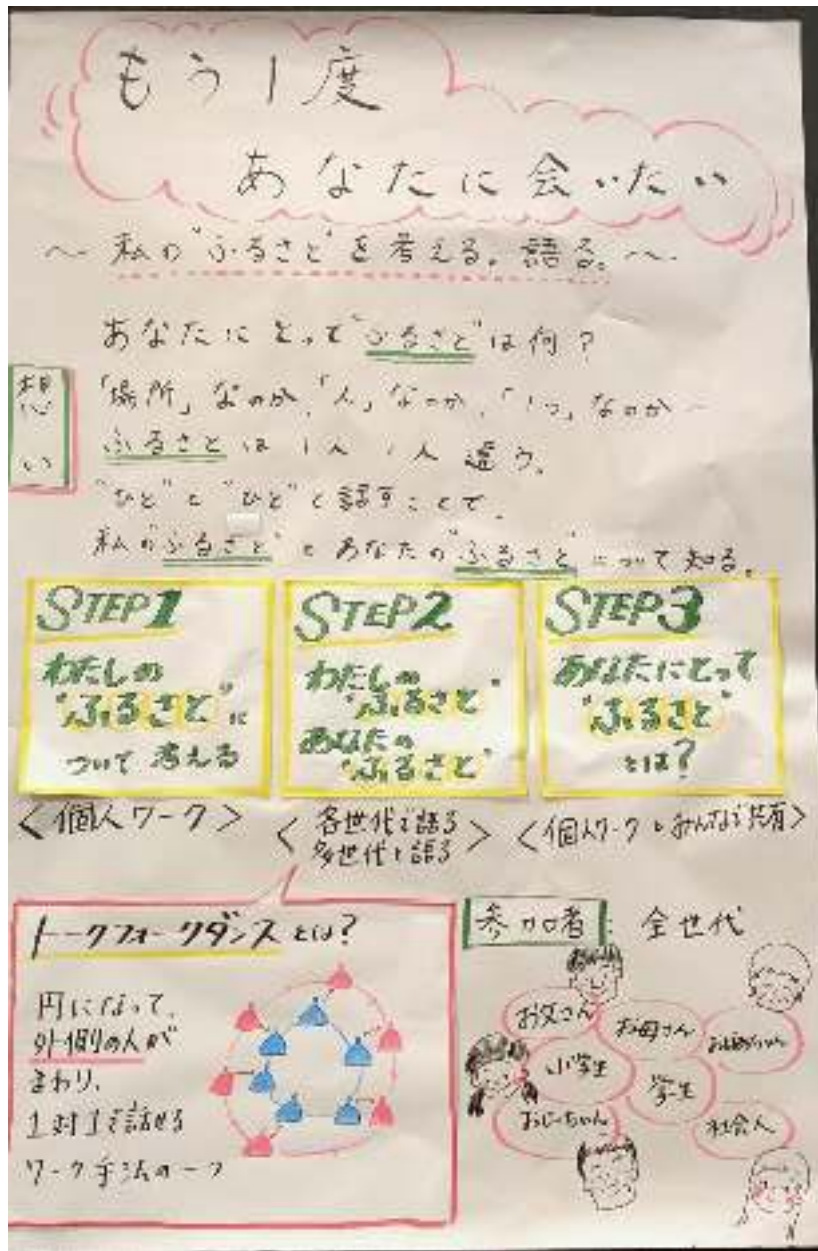 もう1度
あなたに会いたい
〜 私の"ふるさと"を考える。語る。〜
あなたにとって"ふるさと"は何?
想い
「場所」なのか、「人」なのか、「」なのか〜
ふるさとは1人1人違う。
"ひと"と"ひと"と話すことで、
私の"ふるさと"とあなたの"ふるさと"について知る。
STEP1
わたしの
"ふるさと"に
ついて考える
<個人ワーク>
STEP2
わたしの
"ふるさと"
あなたの
"ふるさと"
<各世代で語る
多世代で語る>
STEP3
あなたにとって
"ふるさと"
とは?
<個人ワーク みんなで共有>
トークフォークダンスとは?
円になって、
外側の人が
まわり、
1対1で話せる
ワーク手法の一つ
参加者: 全世代
お父さん
お母さん
おばあちゃん
小学生
学生
おじーちゃん
社会人